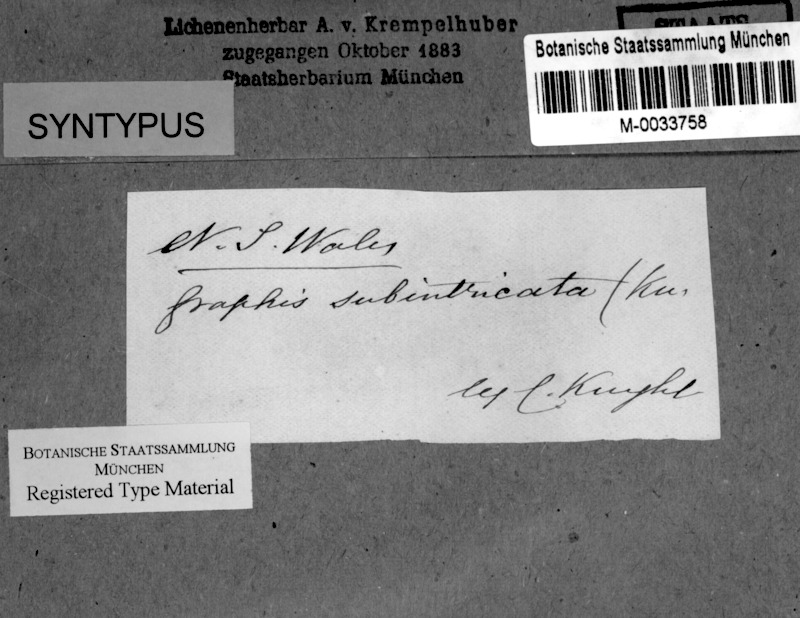 Lichenenherbar A. v. Krempelhuber
zugegangen Oktober 1883
Staatsherbarium München
STAATS
Botanische Staatssammlung München
M-0033758
SYNTYPUS
N. S. Wales
Graphis subintricata (Kn.
leg C. Knight
BOTANISCHE STAATSSAMMLUNG
MÜNCHEN
Registered Type Material